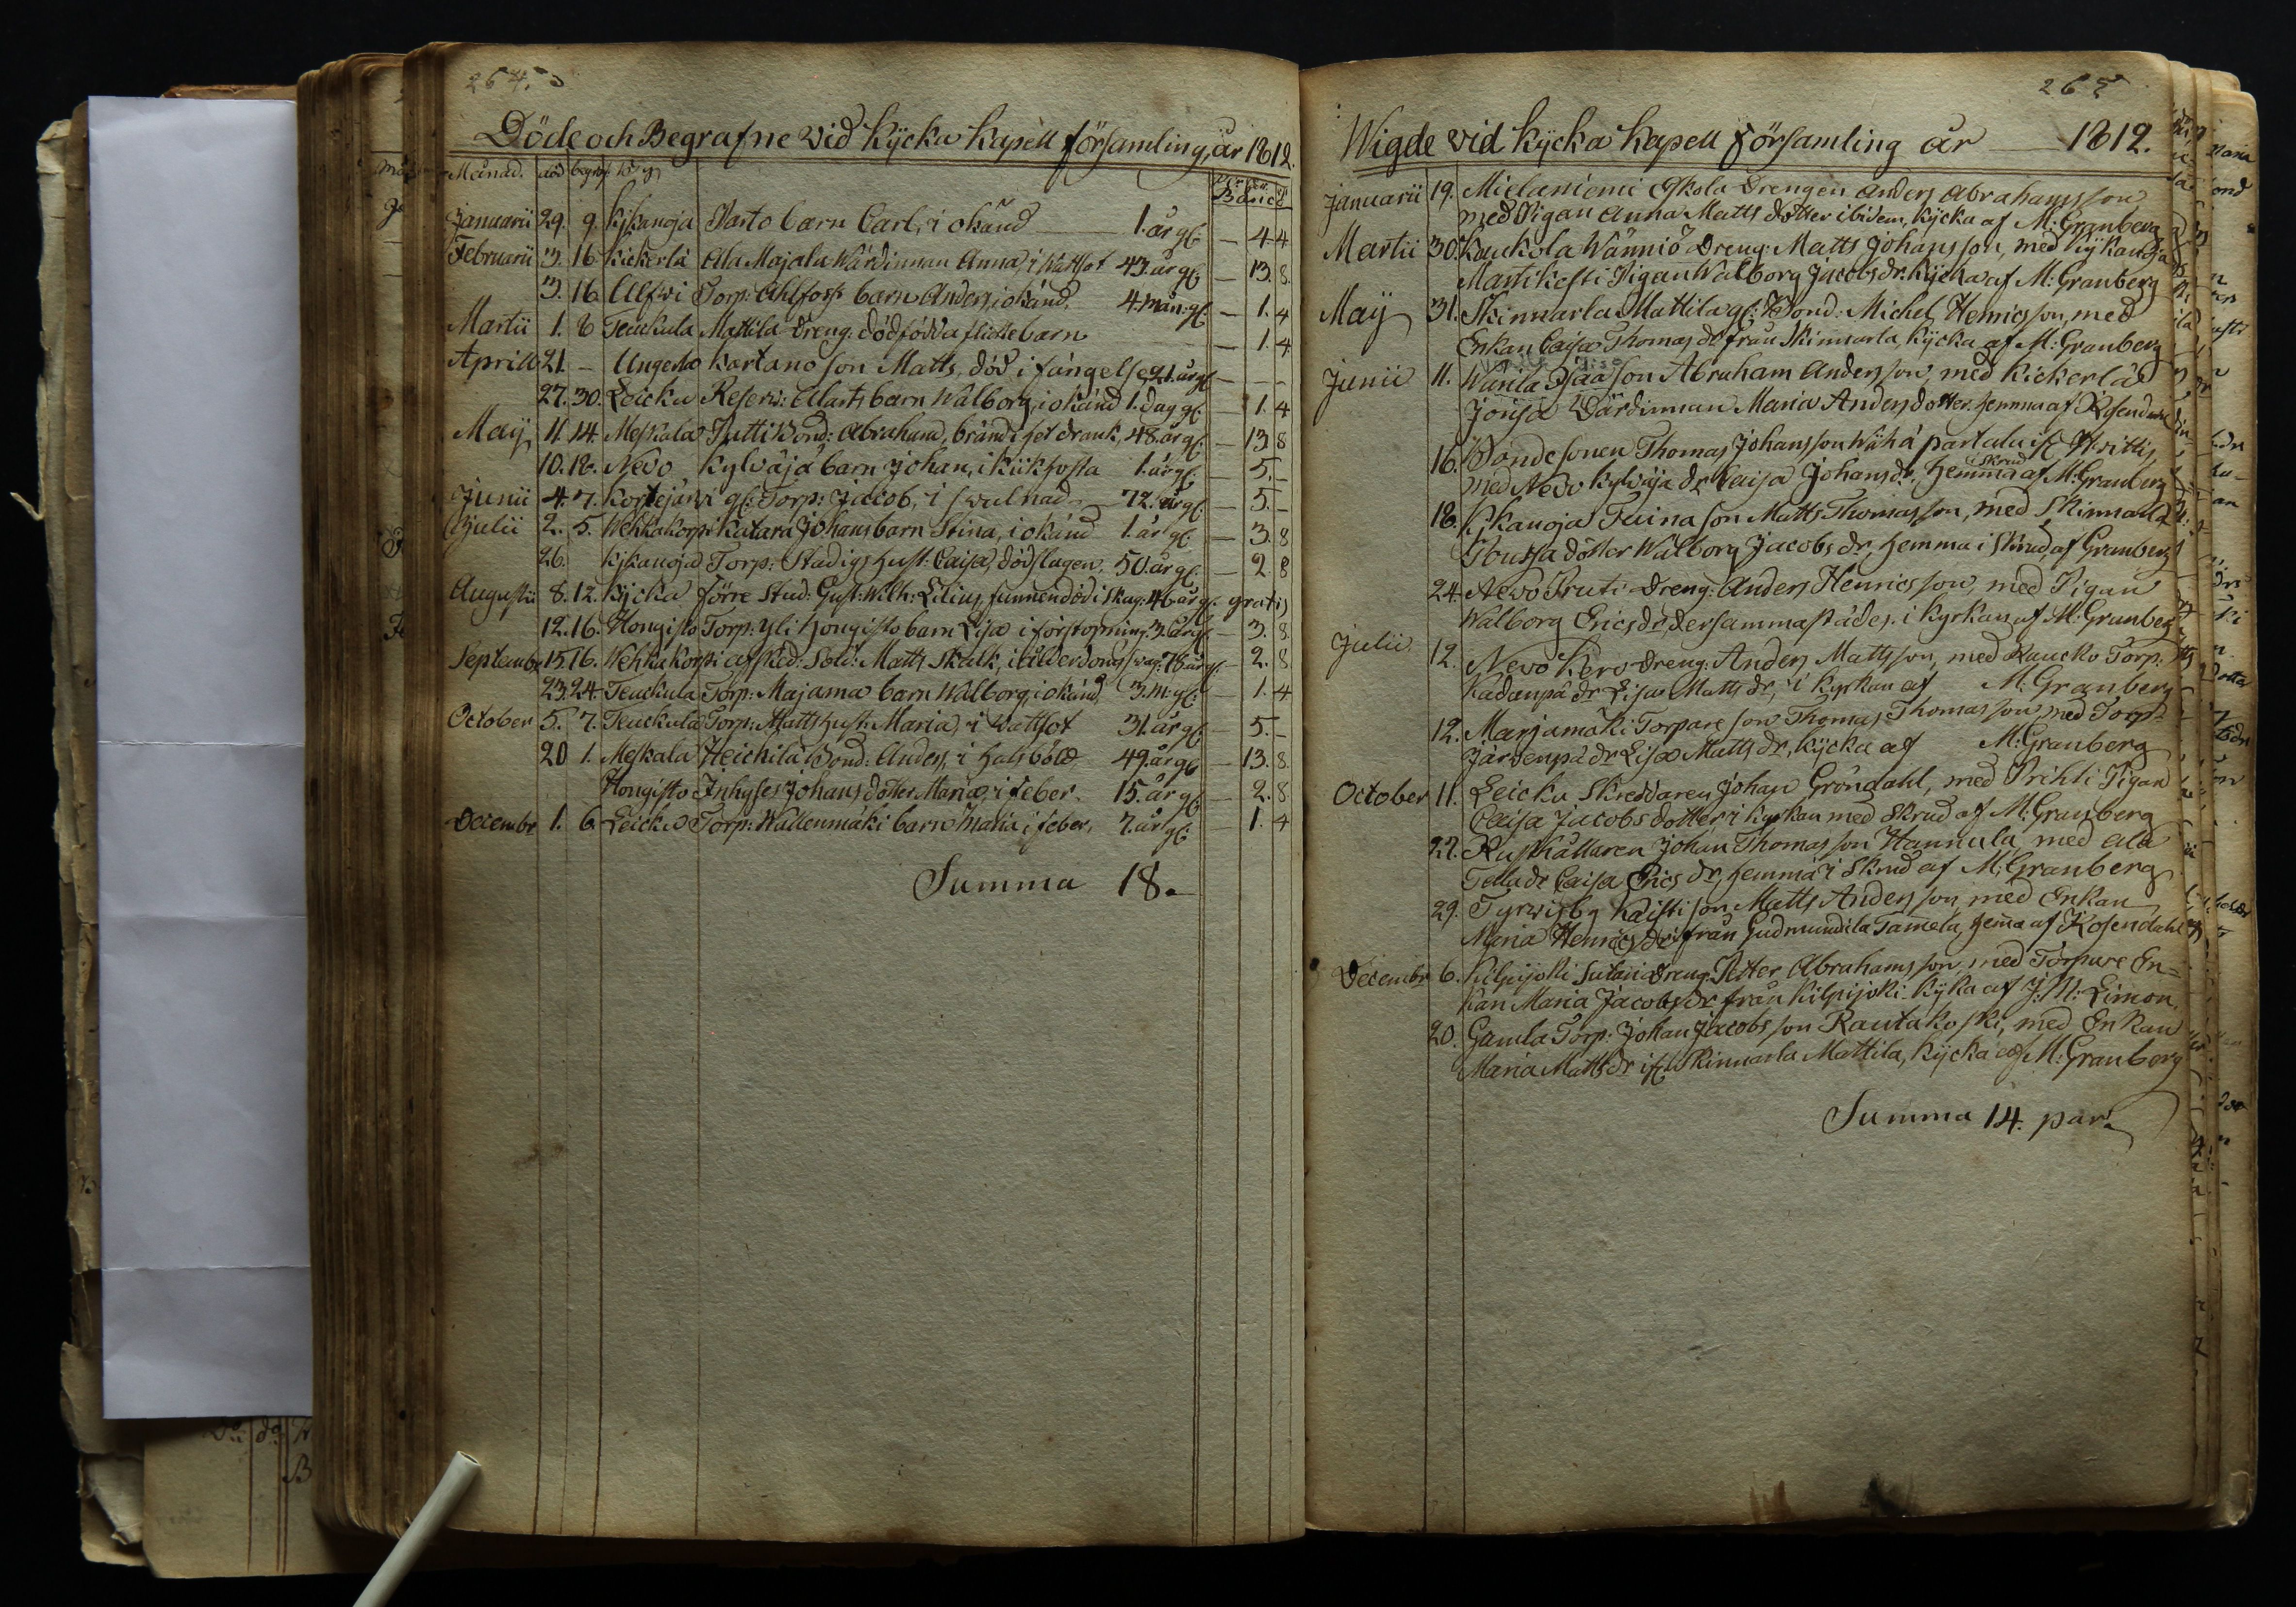 264.
Döde och Begrafne vid Kÿcka Kapell församling, år 1812.
Månad. död begrf. Bÿ
Banco
Januarii 29. 9. Kjkanoja Parto barn Carl, i okänd 1. år gl: — 4. 4
Februarii 3. 16 Kickerlä Ala Majala Wärdinnan Anna, i Wattsot 43. år gl: — 13. 8.
3. 16 Alfwi Torp: Ahlfors barn Anders, i okänd. 4. mån: gl: — 1. 4
Martii 1. 8 Teuckula Mattila dreng: dödfödda flickebarn — 1. 4.
Aprill 21. — Ungerla Kartano son Matts, död i fängelse, 21. år gl — — —
27. 30. Leicku Reserv: Alarts barn Walborg, i okänd 1. dag gl: — 1. 4
Maÿ 11. 14. Meskala Jutti Bond: Abraham, bränd ihjel drank, 48. år gl: — 13 8
10. 18. Nevo Kylväjä barn Johan, i Kikhosta 1. år gl: — 5. —
Junii 4. 7. Kortejärvi gl: Torp: Jacob, i swulnad 72. år gl: — 5. —
Julii 2. 5. Wehkakorpi Katara Johans barn Stina, i okänd 1. år gl: — 3. 8
26. Kjkanoja Torp: Stadigs hust: Caisa, dödslagen, 50. år gl: — 2 8
Augustii 8. 12. Kÿcka förre Stud: Gust: Wilh: Lilius, funnen död i skog: 46 år gl. gratis
12. 16. Hongisto Torp: Yli Hongisto barn Lisa i förstopning. 3. år gl. — 3. 8.
September 15. 16. Wehkakorpi afsked: Sold: Matts Skalk, i ålderdoms swag: 78 år gl: — 2. 8
23. 24. Teuckula Torp: Majama barn Walborg, i okänd, 3. m: gl: — 1. 4
October 5. 7. Teuckula Torp: Matts hust: Maria, i Wattsot 31. år gl: — 5. —
20 1. Meskala Heickilä Bond: Anders, i halsböld, 49. år gl — 13. 8
Hongisto Inhyses Johans dotter Maria, i feber. 15. år gl: — 2. 8
Decembr 1. 6. Leicku Torp: Wällenmäki barn Maria i feber, 7. år gl: — 1. 4
Summa 18. —
265
Wigde vid Kÿcka Kapell församling år — 1812.
Januarii 19. Mielaniemi Eskola Drengen Anders Abrahamsson
med Pigan Anna Matts dotter ibidem, Kÿcka af M: Granberg
Martii 30. Kaukola Wänniö Dreng: Matts Johansson, med Kÿkanoja
Martikesti Pigan Walborg Jacobs dr. Kÿcka af M: Granberg
Maÿ 31. Skinnarla Mattila gl: Bond: Michel Henricsson, med
Enkan Caisa Thomas dr från Skinnarla, Kÿcka af M: Granberg
Junii 11. Wanila son Abraham Andersson, med Kickerlä
Jousa Wärdinnan Maria Anders dotter. hemma af Rosendahl
16. Bonde sonen Thomas Johansson Wähä partalu
med Nevo Kylväjä dr Caisa Johansdr. hemma i Skrud af M: Granberg
18. Kjkanoja Tuina son Matts Thomasson, med Skinnarla
Jousa dotter Walborg Jacobs dr, hemma i Skrud af Granberg
24. Nevo Pruti Dreng: Anders Henricsson, med Pigan
Walborg Erics dr, dersammastädes. i Kyrkan af M: Granberg
Julii. 12. Nevo Kero dreng: Anders Mattsson, med Raucko Torp:
Kadanpä dr Lisa Matts dr, i Kyrkan af M: Granberg
12. Marjamäki Torpare son Thomas Thomasson med Torp:
Järvenpä dr Lisa Matts dr, Kÿcka af M: Granberg
October 11. Leicku Skreddaren Johan Gröndahl, med Prihti Pigan
Caisa Jacobs dotter i Kyrkan med Skrud af M: Granberg
22. Rusthållaren Johan Thomasson Hannula, med Ala
Tella dr Caisa Erics dr, hemma i Skrud af M: Granberg
29. Tyrvisby Kaisti son Matts Andersson, med Enkan
Maria Henrics dr från Gudmundila Tamela, hema af Rosendahl
Decembr 6. Kilpijoki Sutari dreng: Petter Abrahamsson, med Torpare En=
kan Maria Jacobs dr från Kilpijoki Kÿka af J: M: Limon.
20. Gamla Torp: Johan Jacobsson Rautakoski, med Enkan
Maria Matts dr ifr. Skinnarla Mattila, Kÿcka af M: Granberg
Summa 14. par.